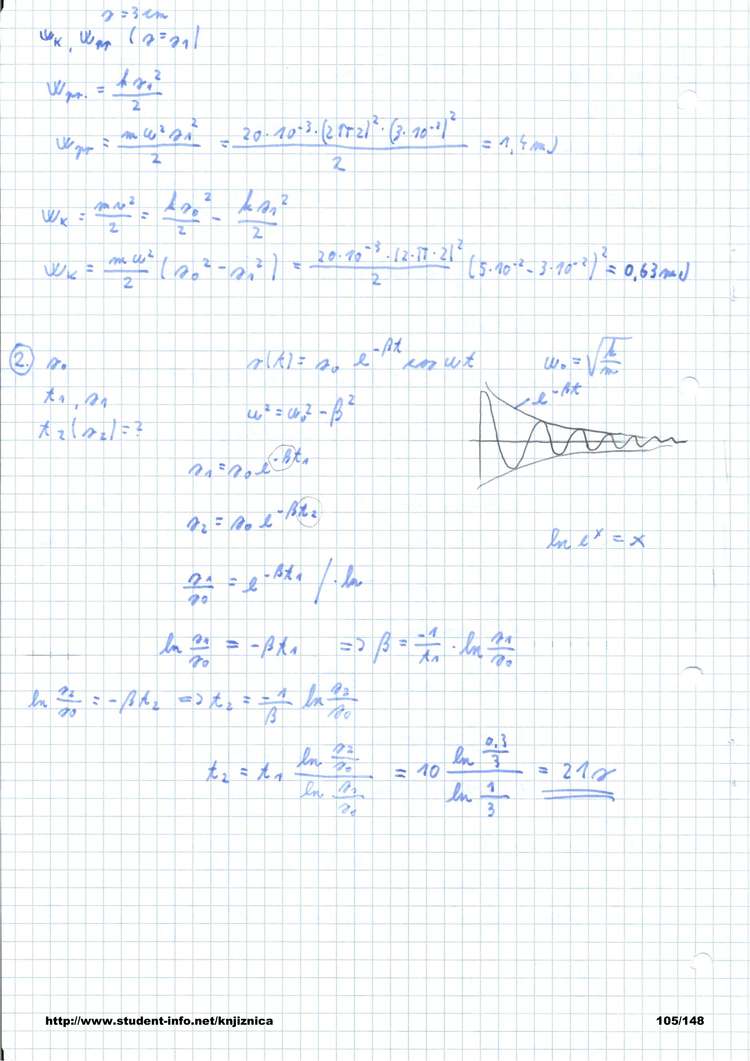 s = 3 cm
Wk, Wpr (s = s1)
Wpr. = k s1² / 2
Wpr = m ω² s1² / 2 = 20·10⁻³·(2π2)²·(3·10⁻²)² / 2 = 1,4 mJ
Wk = mv² / 2 = k s0² / 2 - k s1² / 2
Wk = mω² / 2 (s0² - s1²) = 20·10⁻³·(2·π·2)² / 2 (5·10⁻² - 3·10⁻²)² = 0,63 mJ
2. s0 s(t) = s0 e^-βt cos ωt ω0 = √(k/m)
t1, s1 ω² = ω0² - β² e^-βt
t2(s2) = ?
s1 = s0 e^-βt1
s2 = s0 e^-βt2
ln e^x = x
s1/s0 = e^-βt1 / · ln
ln s1/s0 = -βt1 => β = -1/t1 · ln s1/s0
ln s2/s0 = -βt2 => t2 = -1/β ln s2/s0
t2 = t1 (ln s2/s0) / (ln s1/s0) = 10 (ln 0,3/3) / (ln 1/3) = 21 s
http://www.student-info.net/knjiznica 105/148